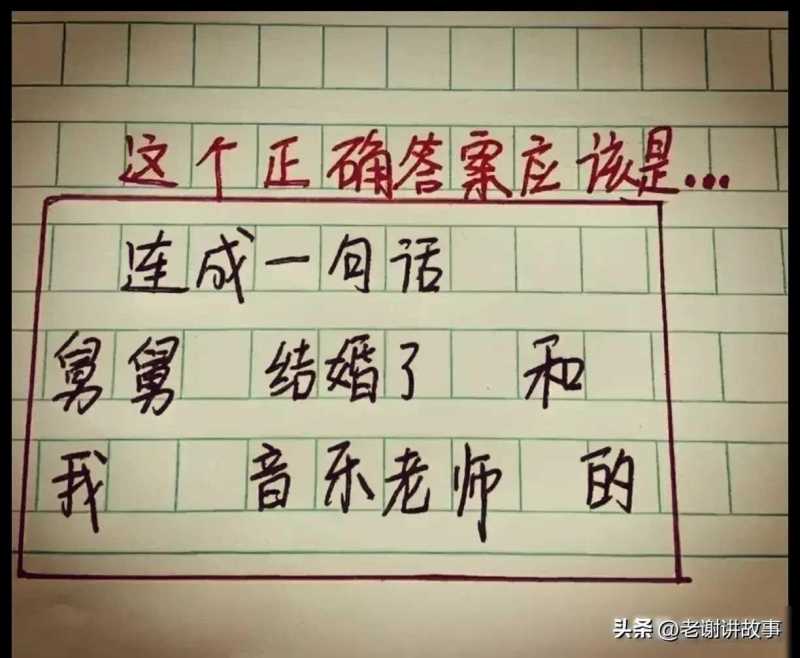 这个正确答案应该是...
连成一句话
舅舅 结婚了 和
我 音乐老师 的
头条 @老谢讲故事